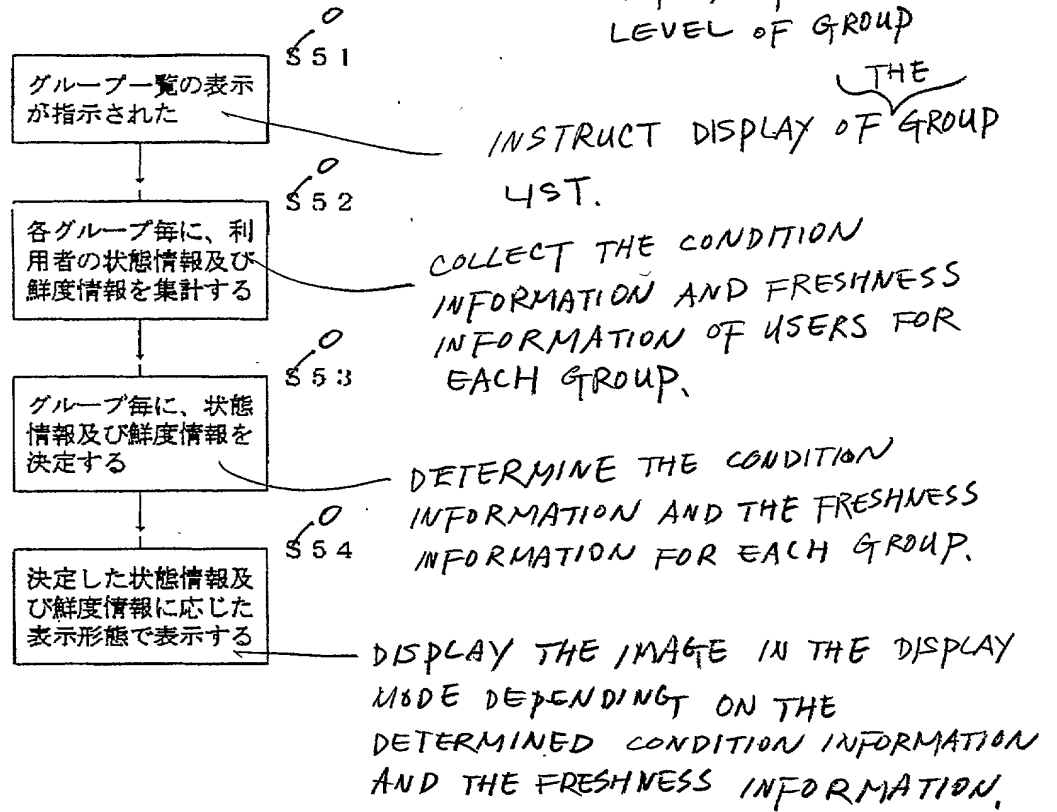 LEVEL OF GROUP
S51
グループ一覧の表示
が指示された
INSTRUCT DISPLAY OF THE GROUP
LIST.
S52
各グループ毎に、利
用者の状態情報及び
鮮度情報を集計する
COLLECT THE CONDITION
INFORMATION AND FRESHNESS
INFORMATION OF USERS FOR
EACH GROUP.
S53
グループ毎に、状態
情報及び鮮度情報を
決定する
DETERMINE THE CONDITION
INFORMATION AND THE FRESHNESS
INFORMATION FOR EACH GROUP.
S54
決定した状態情報及
び鮮度情報に応じた
表示形態で表示する
DISPLAY THE IMAGE IN THE DISPLAY
MODE DEPENDING ON THE
DETERMINED CONDITION INFORMATION
AND THE FRESHNESS INFORMATION.